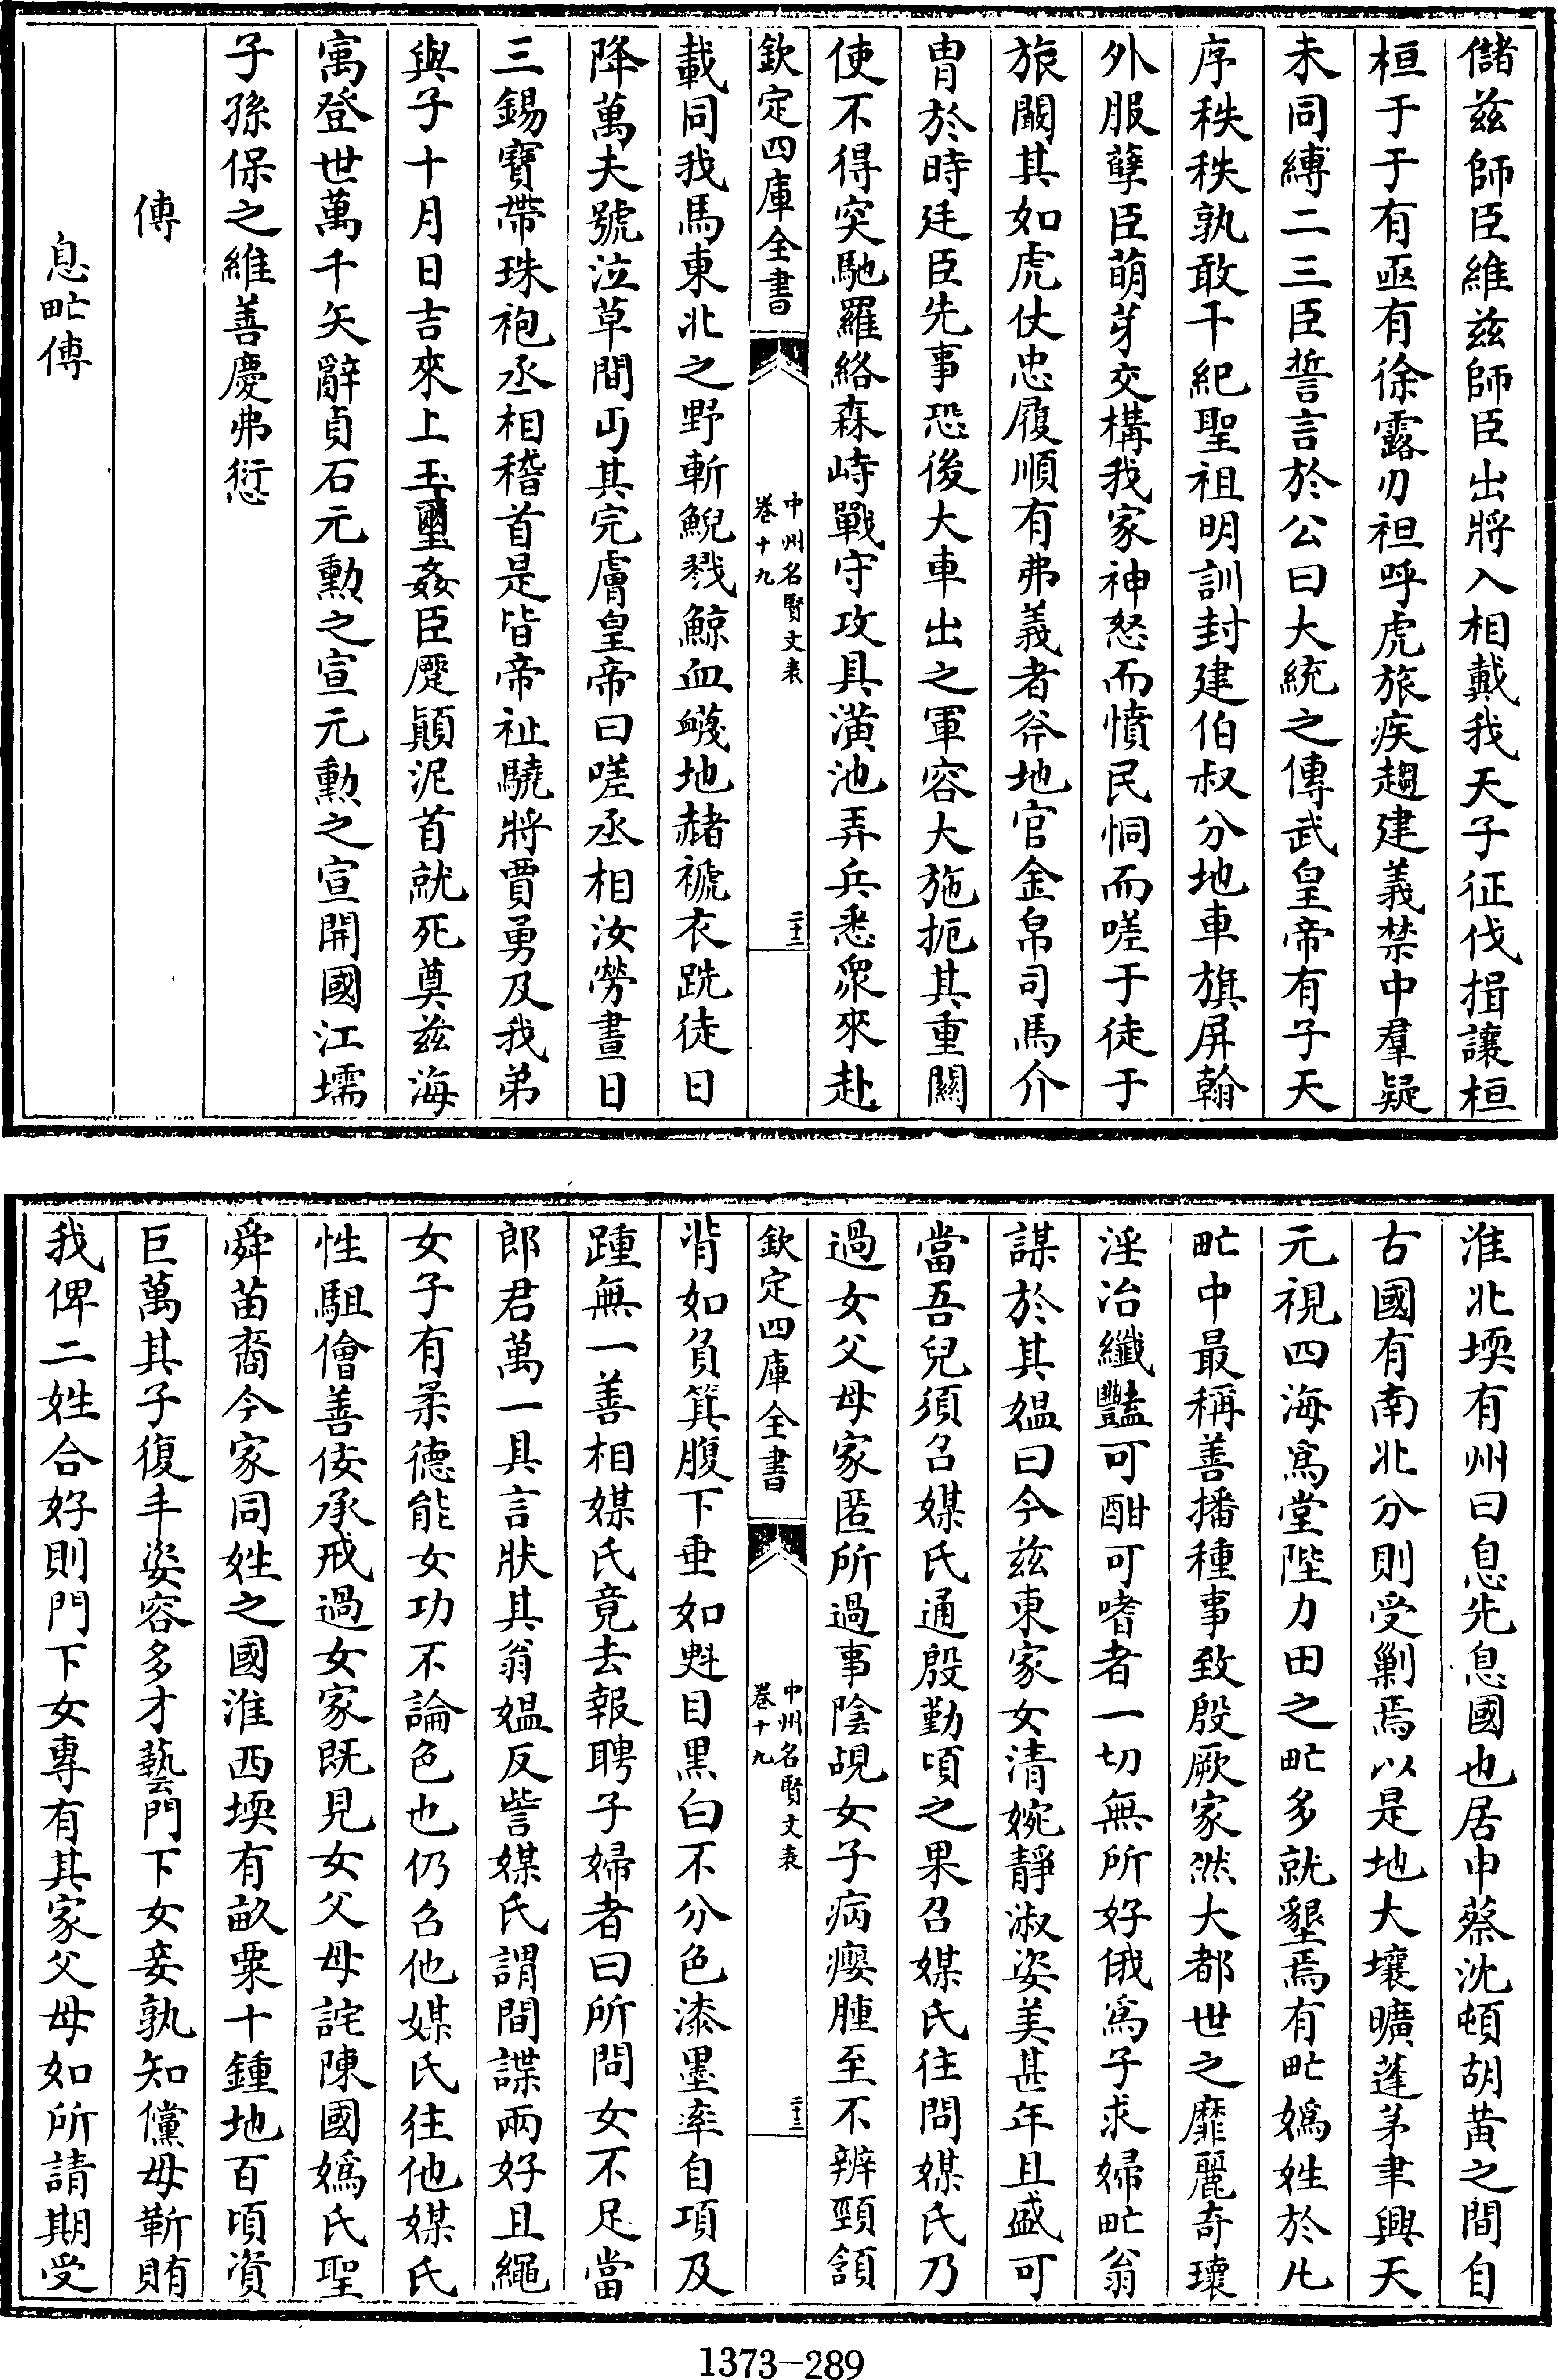 儲兹師臣維兹師臣出將入相戴我天子征伐揖讓桓
桓于于有亟有徐露刃袒呼虎旅疾趨建義禁中羣疑
未同縛二三臣誓言於公曰大統之傳武皇帝有子天
序秩秩孰敢干紀聖祖明訓封建伯叔分地車旗屏翰
外服孽臣萌芽交構我家神怒而憤民恫而嗟于徒于
旅闞其如虎仗忠履順有弗義者斧地官金帛司馬介
冑於時廷臣先事恐後大車出之軍容大施扼其重關
使不得突馳羅絡森峙戰守攻具潢池弄兵悉衆來赴
欽定四庫全書
中州名賢文表
卷十九
二十二
載同我馬東北之野斬鯢戮鯨血衊地赭褫衣跣徒日
降萬夫號泣草間丐其完膚皇帝曰嗟丞相汝勞晝日
三錫寶帶珠袍丞相稽首是皆帝祉驍將賈勇及我弟
與子十月日吉來上玉璽姦臣蹷顛泥首就死奠兹海
寓登世萬千矢辭貞石元勳之宣元勳之宣開國江壖
子孫保之維善慶弗愆
傳
息甿傳
淮北堧有州曰息先息國也居申蔡沈頓胡黄之間自
古國有南北分則受剿焉以是地大壤曠蓬茅聿興天
元視四海爲堂陛力田之甿多就墾焉有甿嬀姓於凡
甿中最稱善播種事致殷厥家然大都世之靡麗奇瓌
淫冶纖豔可酣可嗜者一切無所好俄爲子求婦甿翁
謀於其媪曰今兹東家女清婉靜淑姿美甚年且盛可
當吾兒須召媒氏通殷勤頃之果召媒氏往問媒氏乃
過女父母家匿所過事陰覘女子病癭腫至不辨頸頷
欽定四庫全書
中州名賢文表
卷十九
二十三
背如負箕腹下垂如魁目黒白不分色漆墨率自項及
踵無一善相媒氏竟去報聘子婦者曰所問女不足當
郎君萬一具言狀其翁媪反訾媒氏謂間諜兩好且繩
女子有柔德能女功不論色也仍召他媒氏往他媒氏
性駔儈善佞承戒過女家既見女父母詫陳國嬀氏聖
舜苗裔今家同姓之國淮西堧有畝粟十鍾地百頃資
巨萬其子復丰姿容多才藝門下女妾孰知儻毋靳賄
我俾二姓合好則門下女專有其家父母如所請期受
1373-289